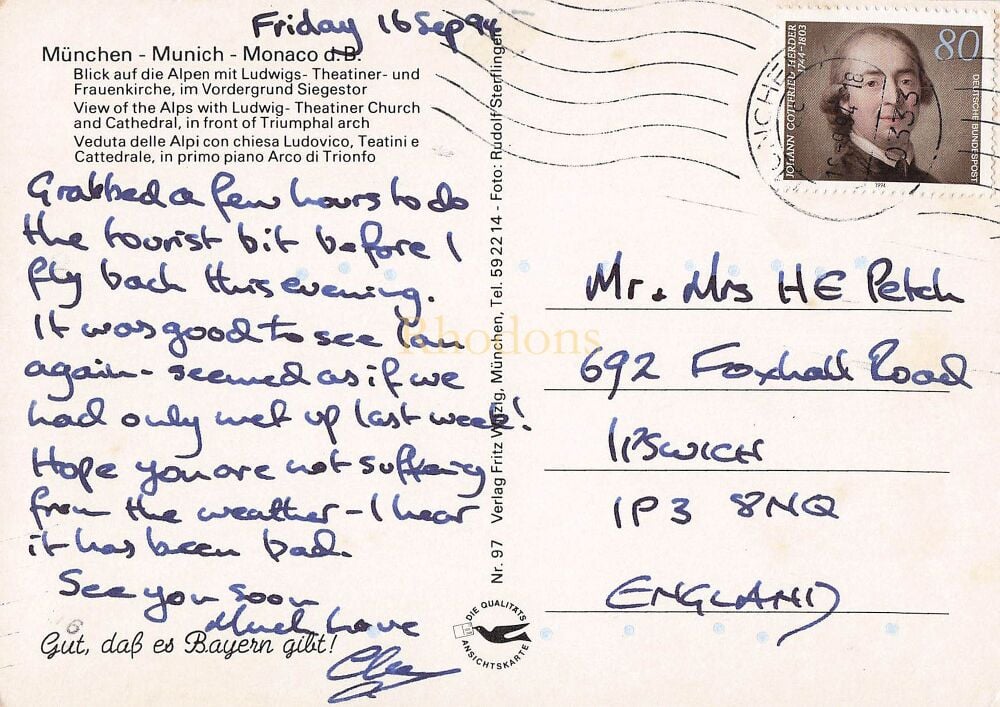 Friday 16 Sep 94
München - Munich - Monaco d.B.
Blick auf die Alpen mit Ludwigs- Theatiner- und
Frauenkirche, im Vordergrund Siegestor
View of the Alps with Ludwig- Theatiner Church
and Cathedral, in front of Triumphal arch
Veduta delle Alpi con chiesa Ludovico, Teatini e
Cattedrale, in primo piano Arco di Trionfo
Grabbed a few hours to do
the tourist bit before I
fly back this evening.
It was good to see
again - seemed as if we
had only met up last week!
Hope you are not suffering
from the weather - I hear
it has been bad.
See you soon
Much Love
Gut, daß es Bayern gibt!
Nr. 97 Verlag Fritz Witzig, München, Tel. 59 22 14 - Foto: Rudolf Sterflinger
DIE QUALITÄTS
ANSICHTSKARTE
Rhodons
80
JOHANN GOTTFRIED HERDER
1744-1803
DEUTSCHE BUNDESPOST
1994
Mr. & Mrs H E Petch
692 Foxhall Road
IPSWICH
IP3 8NQ
ENGLAND